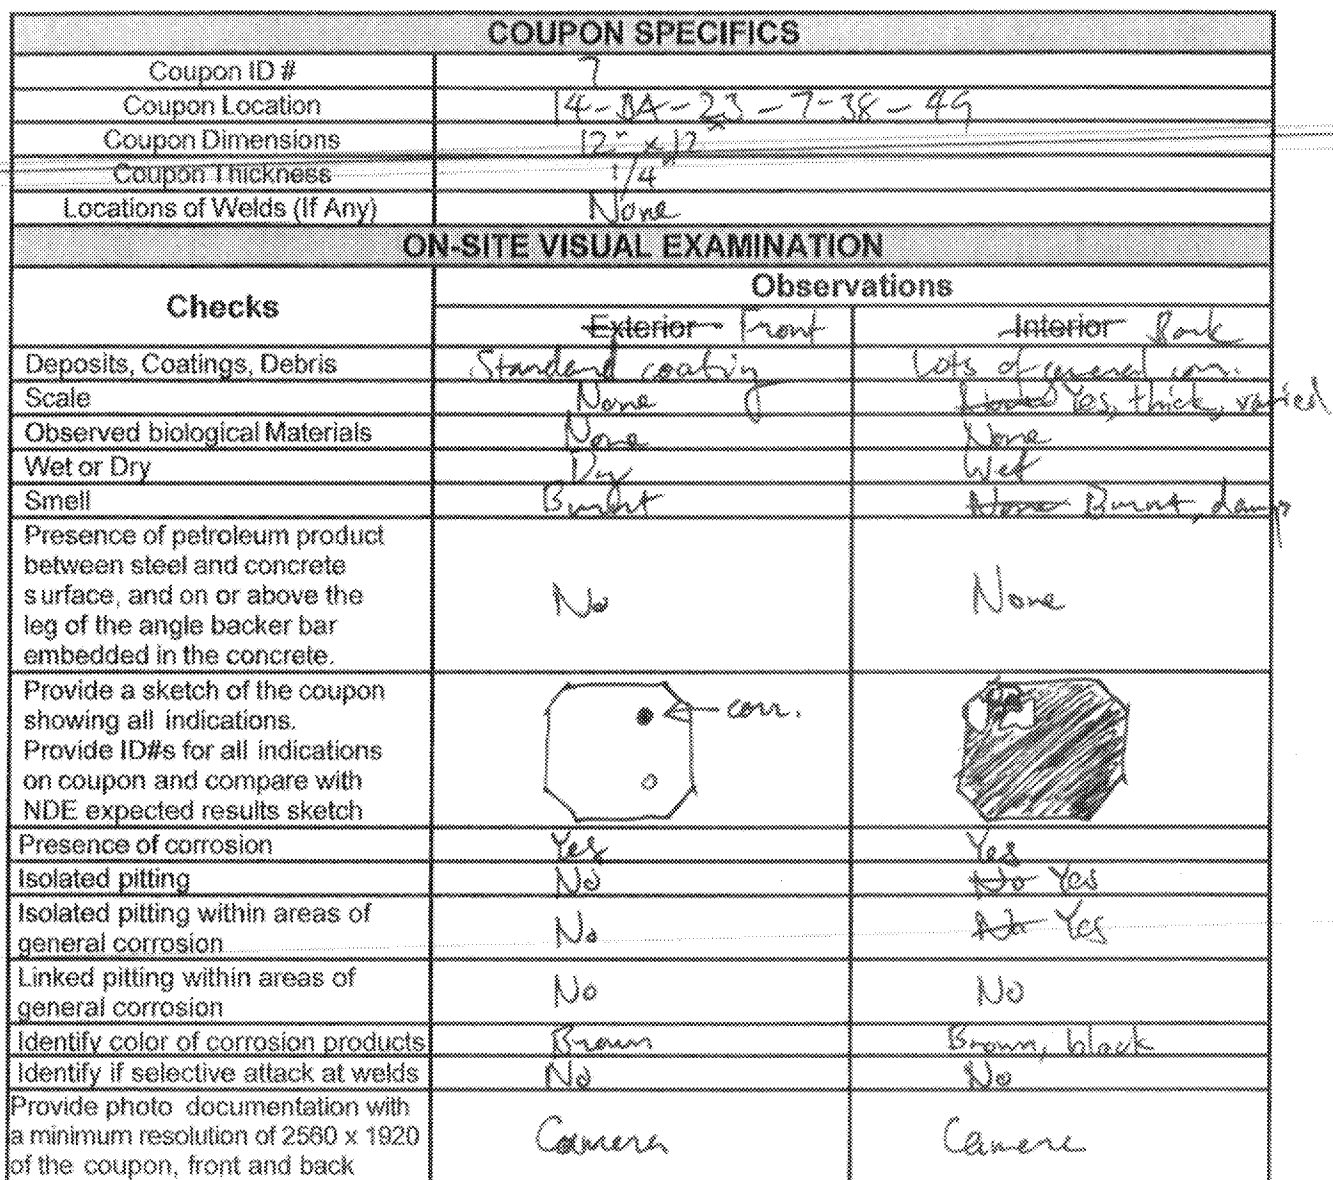 COUPON SPECIFICS
Coupon ID # 7
Coupon Location 14-BA-23-7-38-49
Coupon Dimensions 12" x 12"
Coupon Thickness 1/4"
Locations of Welds (If Any) None
ON-SITE VISUAL EXAMINATION
Checks
Observations
Exterior Front Interior Back
Deposits, Coatings, Debris Standard coating Lots of general corr.
Scale None None Yes, thick, varied
Observed biological Materials None None
Wet or Dry Dry Wet
Smell Burnt None Burnt, damp
Presence of petroleum product
between steel and concrete
surface, and on or above the
leg of the angle backer bar
embedded in the concrete.
No None
Provide a sketch of the coupon
showing all indications.
Provide ID#s for all indications
on coupon and compare with
NDE expected results sketch
corr.
Presence of corrosion Yes Yes
Isolated pitting No No Yes
Isolated pitting within areas of
general corrosion
No No Yes
Linked pitting within areas of
general corrosion
No No
Identify color of corrosion products Brown Brown, black
Identify if selective attack at welds No No
Provide photo documentation with
a minimum resolution of 2560 x 1920
of the coupon, front and back
Camera Camera